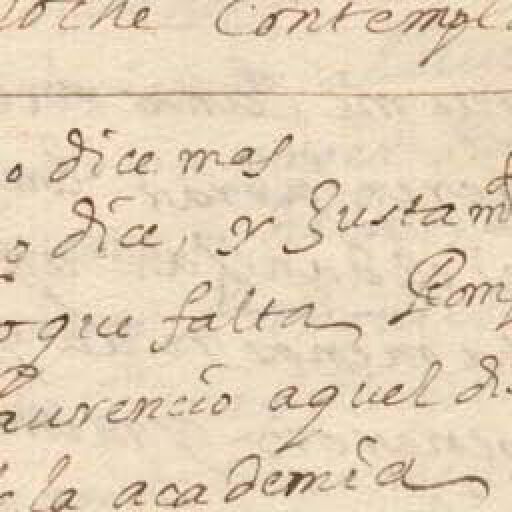 noche Contempl
o dice mas
dice, y Gustam
oque falta Pomp
Laurencio aquel di
la academia